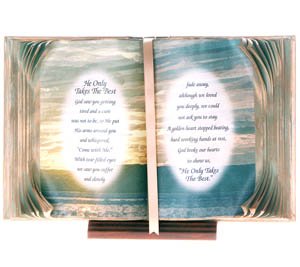 He Only
Takes The Best
God saw you getting
tired and a cure
was not to be, so He put
His arms around you
and whispered,
"Come with Me."
With tear filled eyes
we saw you suffer
and slowly
fade away,
although we loved
you deeply, we could
not ask you to stay
A golden heart stopped beating,
hard working hands at rest,
God broke our hearts
to show us,
"He Only Takes
The Best."